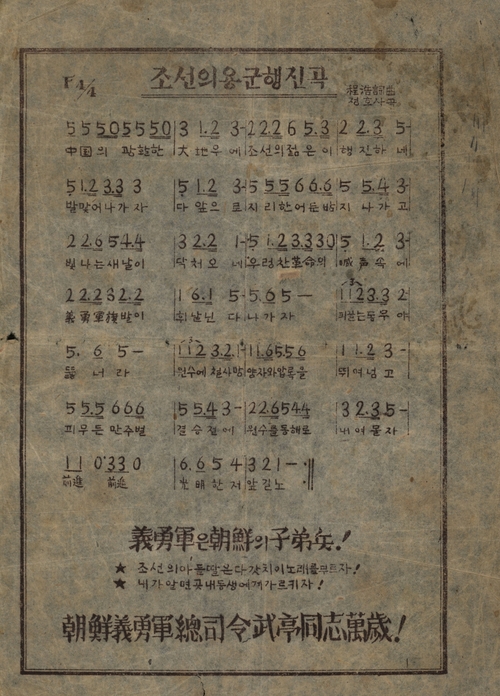 조선의용군행진곡
F 4/4
程浩詞曲
정호사곡
5 5 5 0 5 5 5 0 | 3 1.2 3- 2 2.2 6 5.3 2 2.3 5-
中国의 광활한 大地우에 조선의젊은이 행진하네
5 1.2 3.3 3 | 5 1.2 3- 5 5 5 6 6.6 | 5 5.4 3-
발맞어나가자 다앞으로 지리한어둔밤지나가고
2 2.6 5 4.4 | 3 2.2 1- 5 1.2 3.3 3 0 | 5 1.2 3-
빛나는새날이 닥처오네 우렁찬革命의 喊声속에
2 2.2 3 2.2 | 1 6.1 5- 5.6 5 — 1 1 2 3.3 2-
義勇軍旗발이 휘날닌다 나가자 피끓는동무야
5. 6 5 — 1 1 2 3.2 1- 1 1.6 5.5 6 | 1 1.2 3-
뚤너라 원수에철사망 양자와압록을 뛰여넘고
5 5.5 6 6 6 | 5 5 4 3- 2 2.6 5 4 4 | 3 2.3 5-
피무든만주벌 결승전에 원수를동해로 내여몰자
1 1 0 3 3 0 | 6.6 5 4 | 3 2 1 —
前進 前進 光明한저앞길노
義勇軍은朝鮮의子弟兵!
★ 조선의아들딸은다갗치이노래를부르자!
★ 네가알면곳내동생에게가르키자!
朝鮮義勇軍總司令武亭同志萬歲!